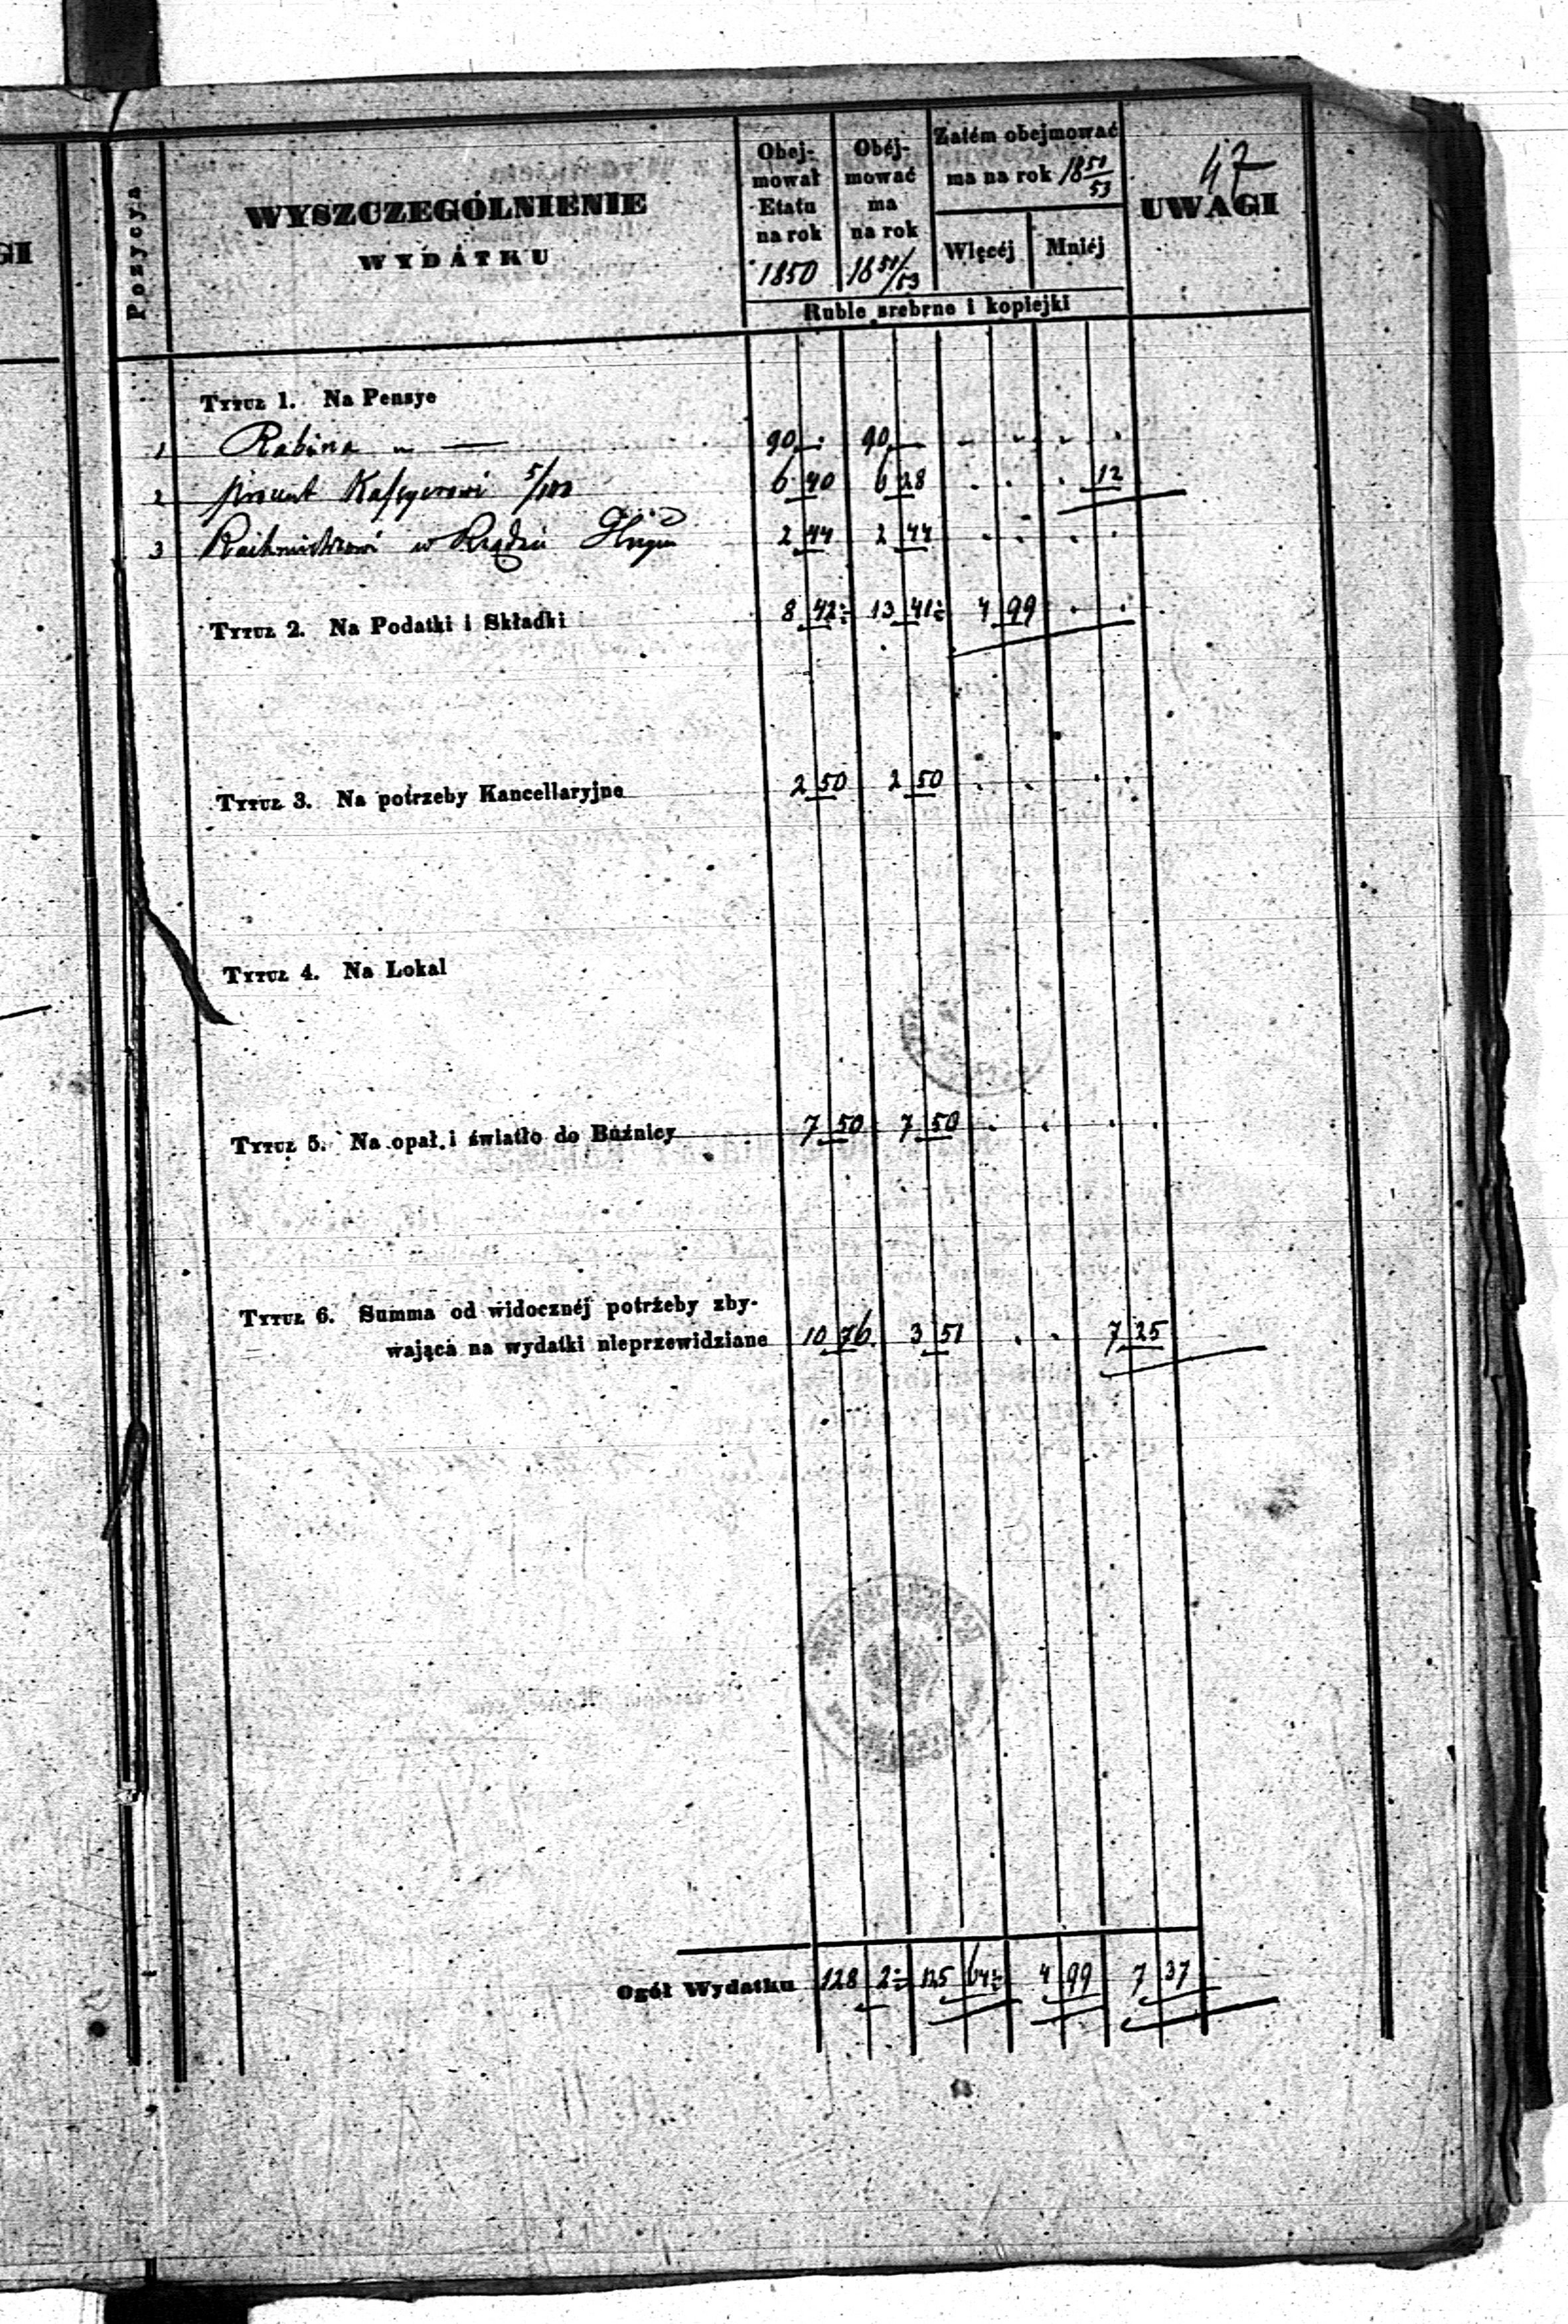 GI
47
Pozycya
WYSZCZEGÓLNIENIE
WYDATKU
Obej-
mował
Etatu
na rok
1850
Obéj-
mować
ma
na rok
18 51/53
Zatém obejmować
ma na rok 18 51/53
Więcéj
Mniéj
UWAGI
Ruble srebrne i kopiejki
Tytuł 1. Na Pensye
1 Rabina „ — 90 — 90 — . . . .
2 procent Kassyerowi 5/100 6 40 6 28 . . . 12
3 w 2 44 2 44 . . . .
Tytuł 2. Na Podatki i Składki 8 42 13 41 4 99 . .
Tytuł 3. Na potrzeby Kancellaryjne 2 50 2 50 . . . .
Tytuł 4. Na Lokal
Tytuł 5. Na opał i światło do Bóźnicy 7 50 7 50 . . . .
Tytuł 6. Summa od widocznéj potrzeby zby-
wająca na wydatki nieprzewidziane 10 76 3 51 . . 7 25
Ogół Wydatku 128 2 125 64 4 99 7 37